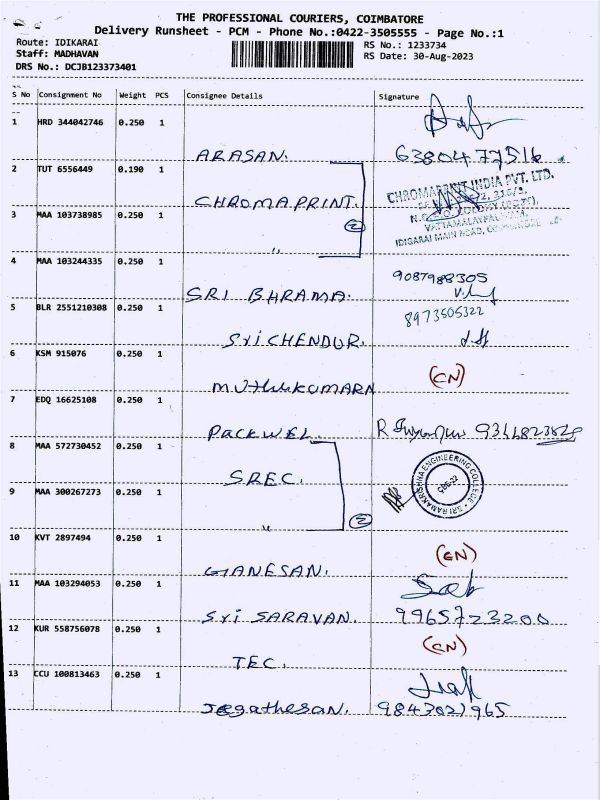 THE PROFESSIONAL COURIERS, COIMBATORE
Delivery Runsheet - PCM - Phone No.:0422-3505555 - Page No.:1
Route: IDIKARAI
RS No.: 1233734
Staff: MADHAVAN
RS Date: 30-Aug-2023
DRS No.: DCJB123373401
S No Consignment No Weight PCS Consignee Details Signature
1 HRD 344042746 0.250 1
ARASAN. 6380477516
2 TUT 6556449 0.190 1
CHROMAPRINT INDIA PVT. LTD.
CHROMAPRINT.
3 MAA 103738985 0.250 1
2
IDIGARAI MAIN ROAD,
"
4 MAA 103244335 0.250 1
9087988305
SRI BHRAMA.
5 BLR 2551210308 0.250 1
8973505322
Sri CHENDUR.
6 KSM 915076 0.250 1
(CN)
MUTHUKUMARN
7 EDQ 16625108 0.250 1
PACKWEL.
8 MAA 572730452 0.250 1
SREC.
SRI RAMAKRISHNA ENGINEERING COLLEGE
CBE-22
9 MAA 300267273 0.250 1
" 2
10 KVT 2897494 0.250 1
(CN)
GANESAN.
11 MAA 103294053 0.250 1
Sri SARAVAN. 9965723200
12 KUR 558756078 0.250 1
(CN)
TEC.
13 CCU 100813463 0.250 1
Jegathesan. 9843021965